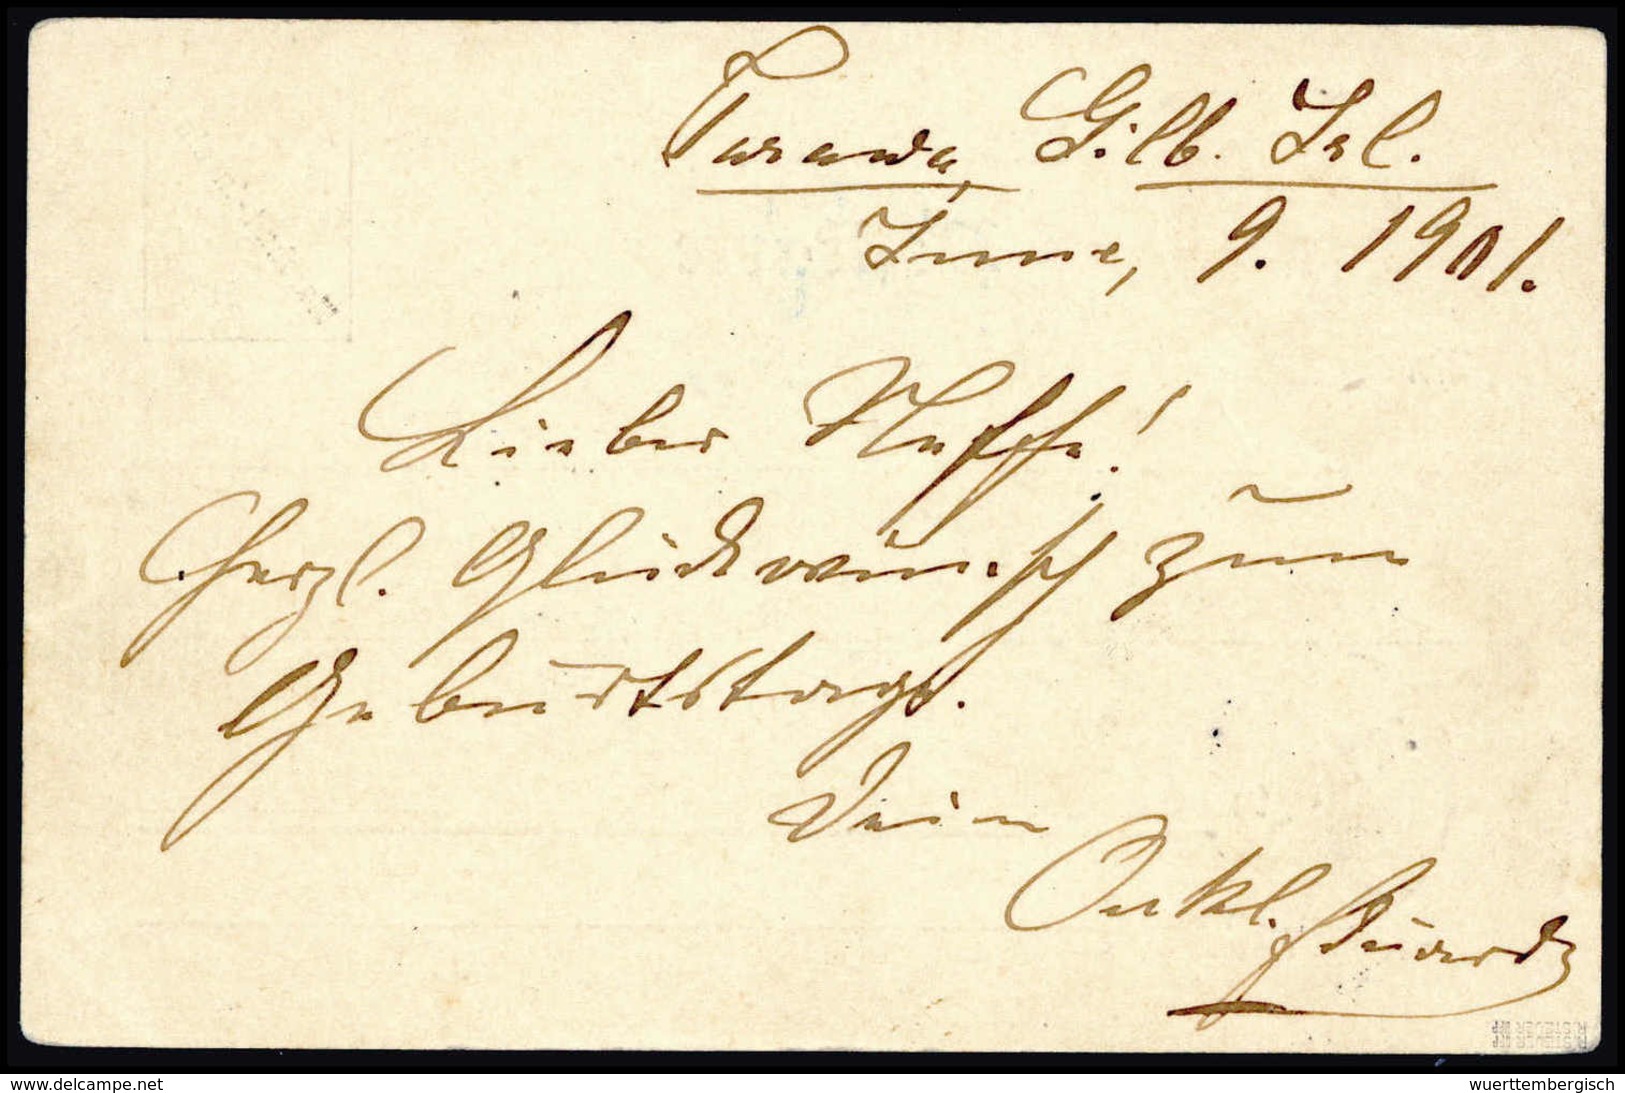 Tarawa, Gilb. Isl.
June, 9. 1901.
Lieber Neffe!
Herzl. Glückwunsch zum
Geburtstage.
Dein
Onkel. Eduard
R.STEUER BPP
R.STEUER BPP
www.delcampe.net
wuerttembergisch